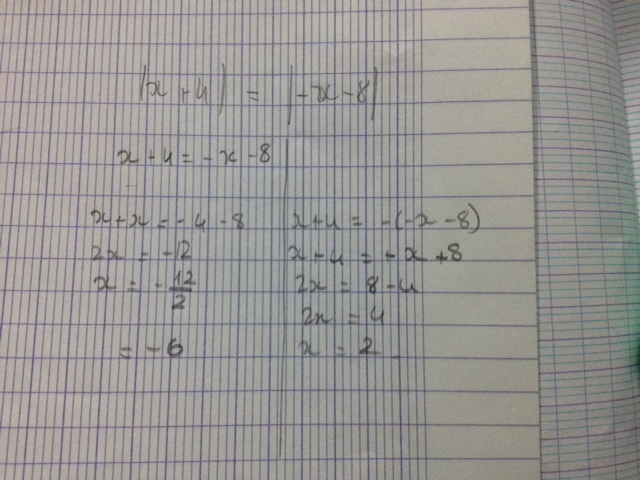 |x + 4| = |-x - 8|
x + 4 = -x - 8
x + x = -4 - 8
2x = -12
x = -12/2
= -6
x + 4 = -(-x - 8)
x + 4 = +x +8
2x = 8 - 4
2x = 4
x = 2